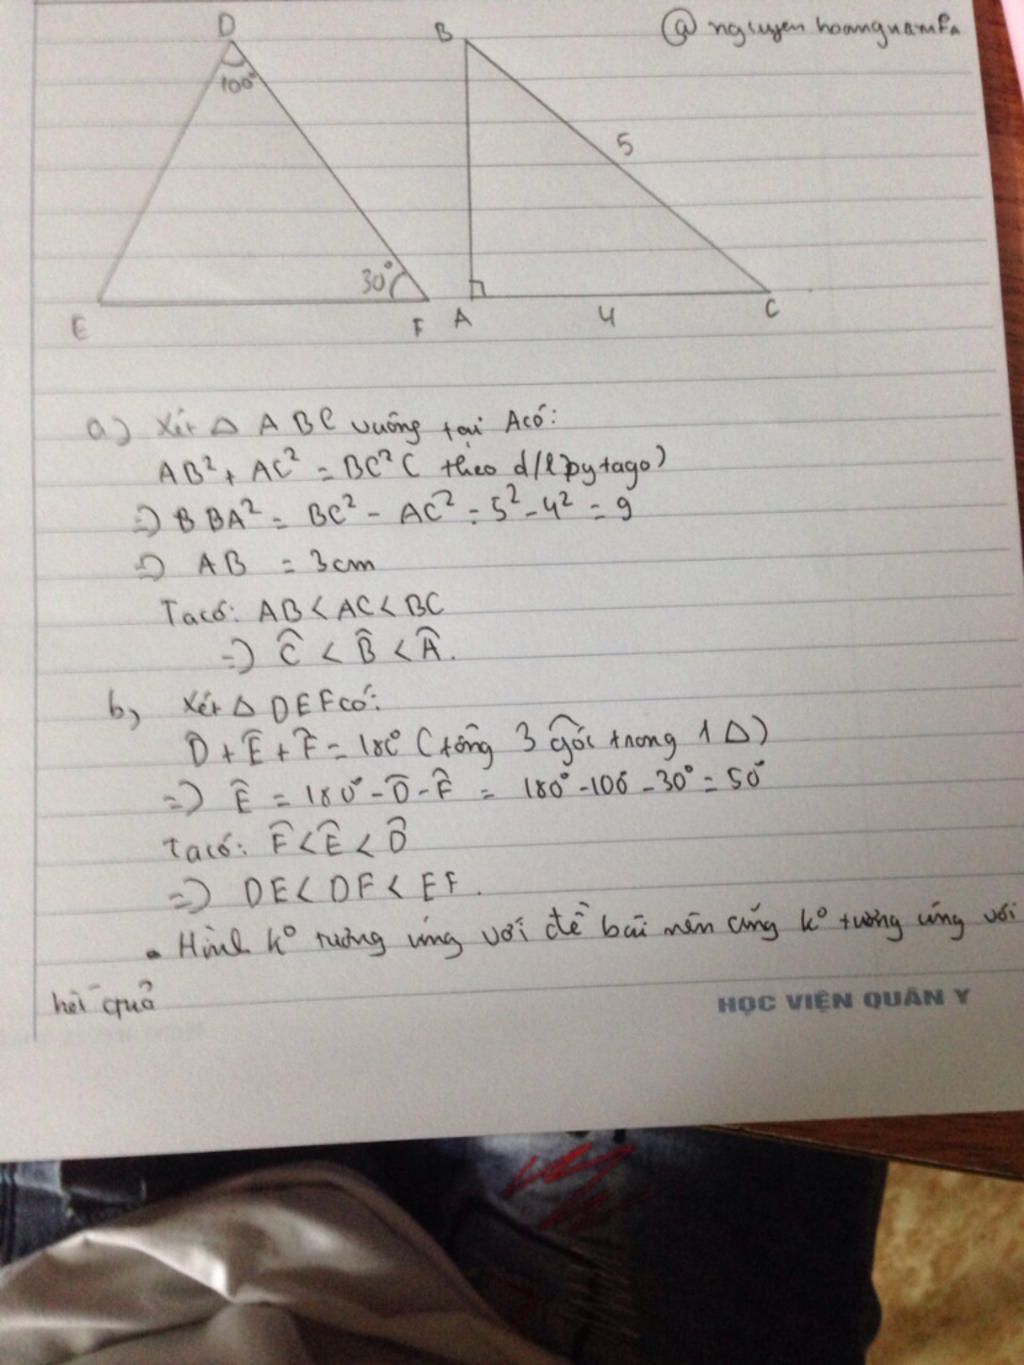 @ nguyenhoangnam
D
100°
E
30°
F
B
5
A
4
C
a) Xét Δ ABC vuông tại A có:
AB² + AC² = BC² ( theo d/l pytago)
=> BBA² = BC² - AC² = 5² - 4² = 9
=> AB = 3cm
Ta có: AB < AC < BC
=> Ĉ < B̂ < Â.
b, Xét Δ DEF có:
D̂ + Ê + F̂ = 180° ( tổng 3 góc trong 1 Δ)
=> Ê = 180° - D̂ - F̂ = 180° - 100 - 30° = 50°
Ta có: F̂ < Ê < D̂
=> DE < DF < EF.
• Hình k° tương ứng với đề bài nên cũng k° tương ứng với
kết quả
HỌC VIỆN QUÂN Y